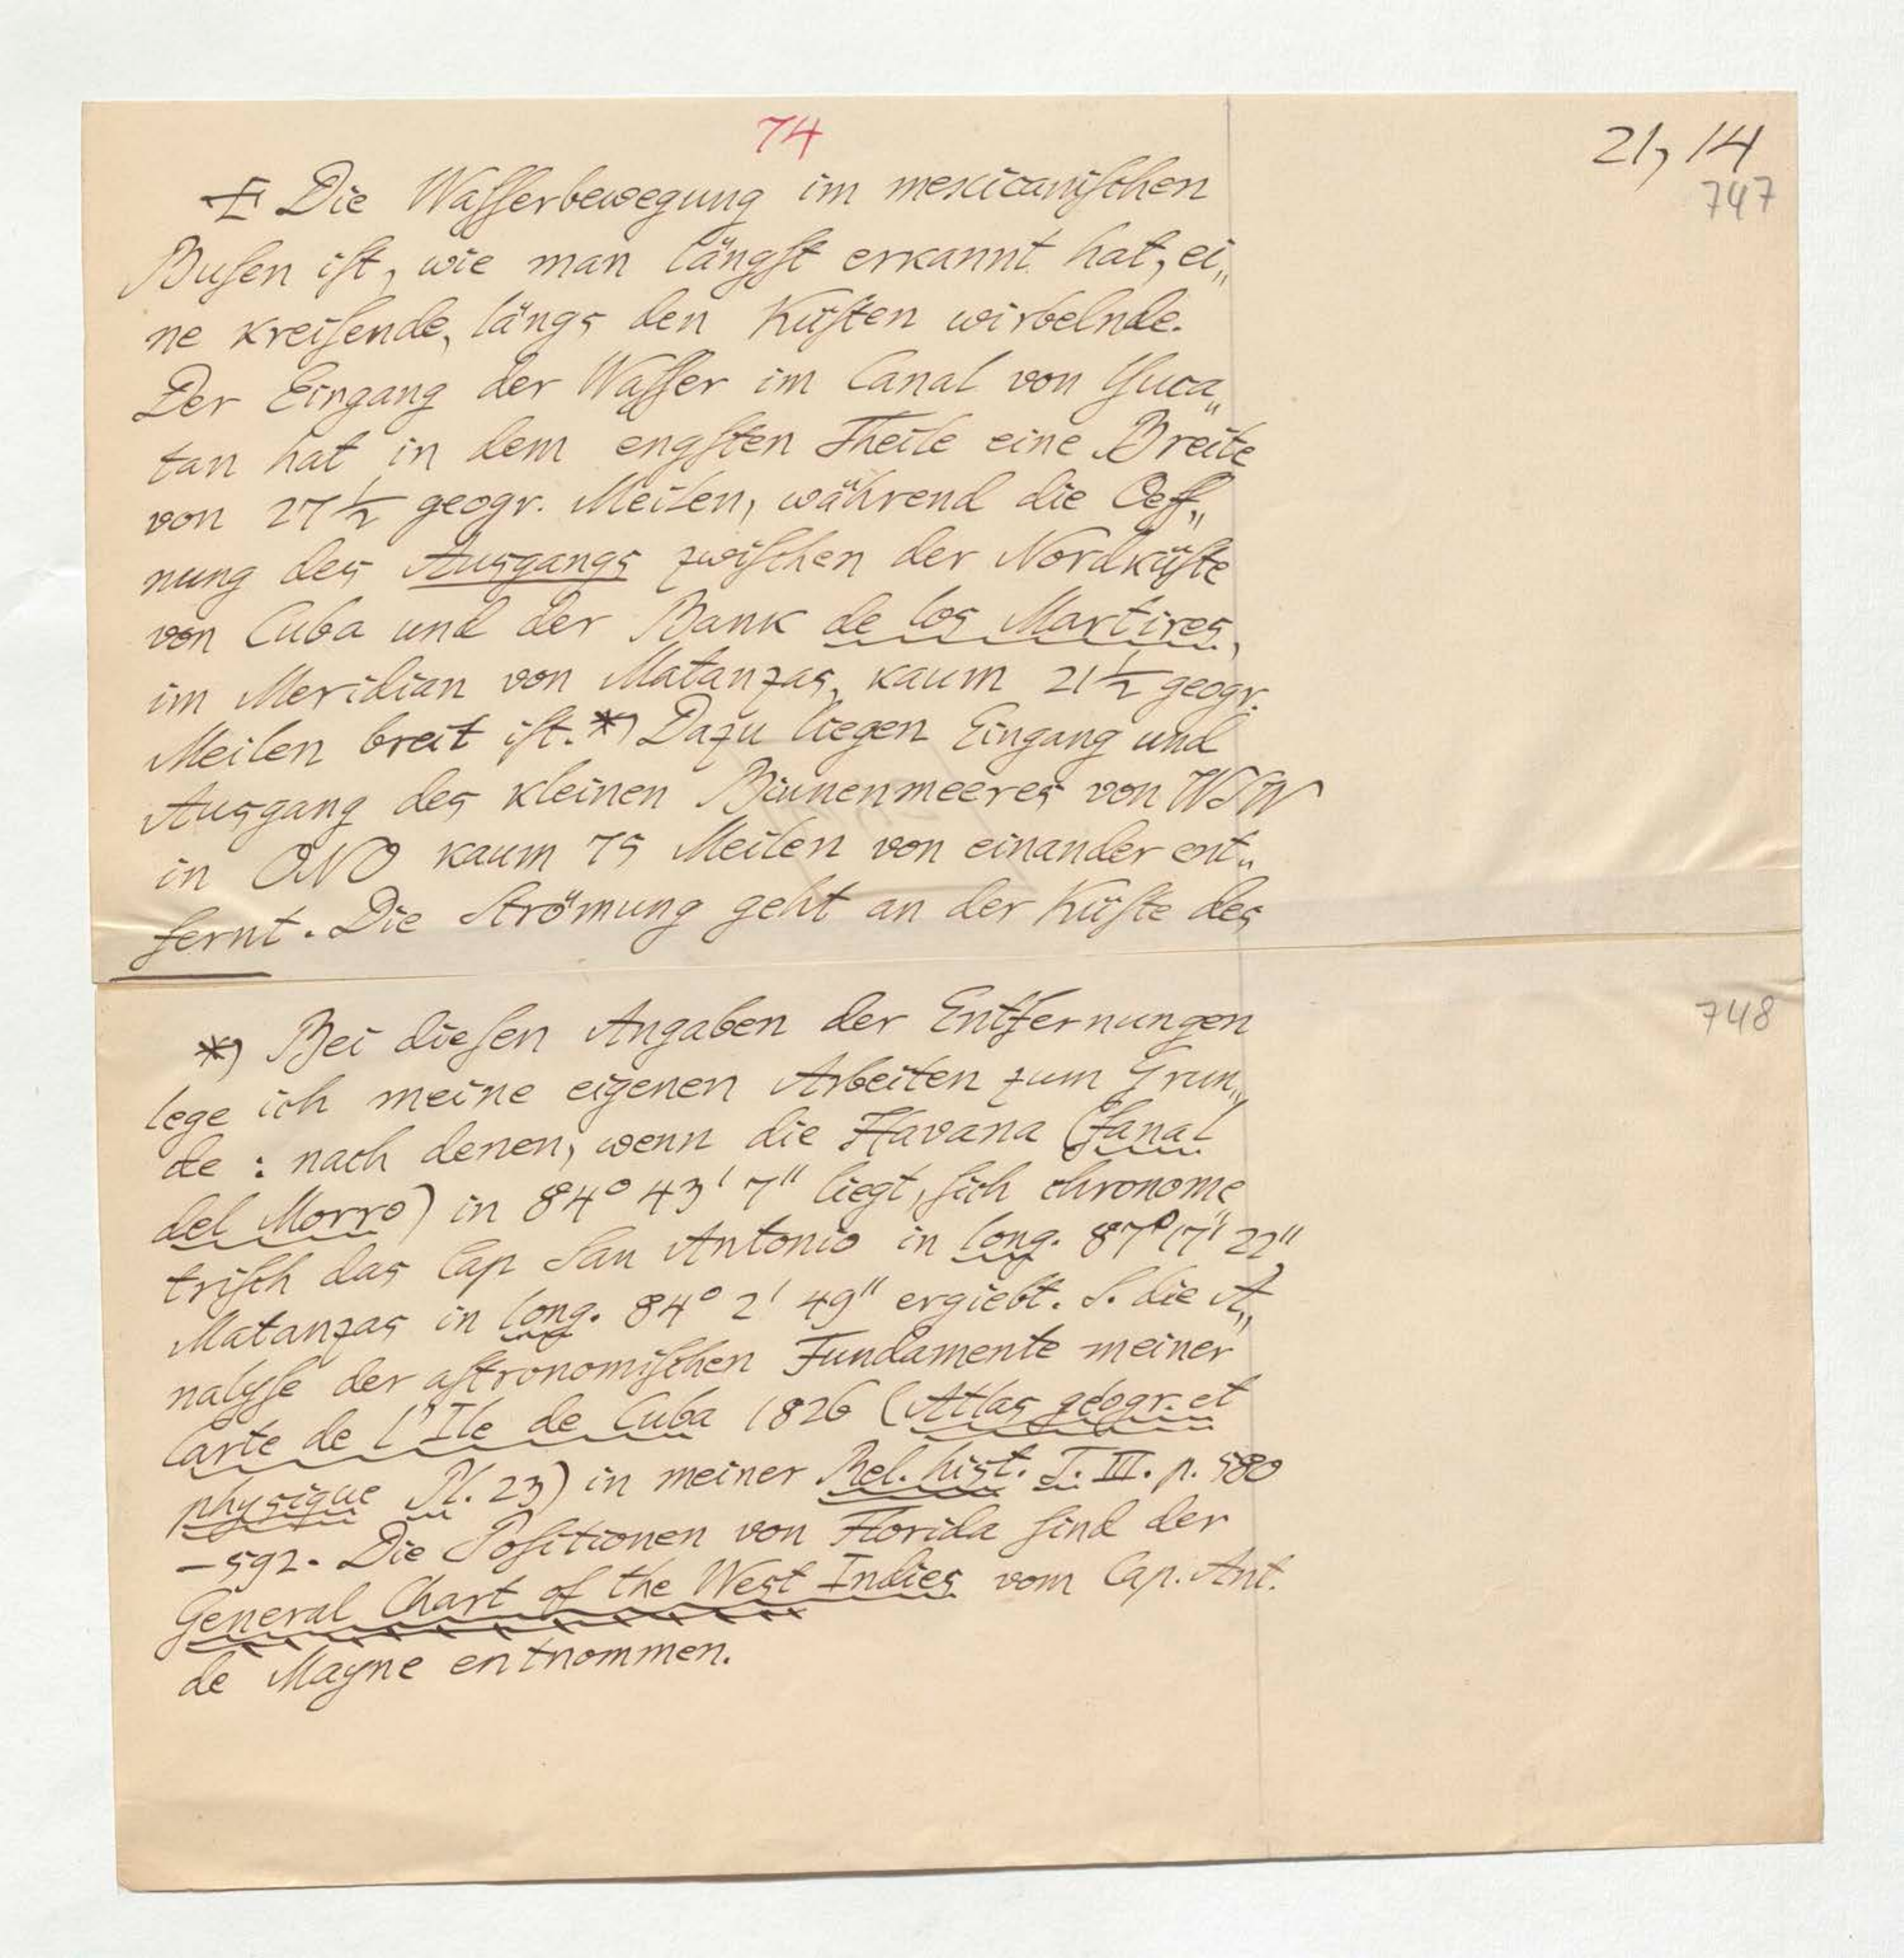 74
21, 14
747
Die Waſſerbewegung im mexicaniſchen
Buſen iſt, wie man längſt erkannt hat, ei„
ne kreiſende, längs den Küſten wirbelnde.
Der Eingang der Waſſer im Canal von Yuca„
tan hat in dem engſten Theile eine Breite
von 27 1/2 geogr. Meilen, während die Oeff„
nung des Ausgangs zwiſchen der Nordküſte
von Cuba und der Bank de los Martires,
im Meridian von Matanzas, kaum 21 1/2 geogr.
Meilen breit iſt.*) Dazu liegen Eingang und
Ausgang des kleinen Binnenmeeres von WSW
in ONO kaum 75 Meilen von einander ent„
fernt. Die Strömung geht an der Küſte des
748
*) Bei dieſen Angaben der Entfernungen
lege ich meine eigenen Arbeiten zum Grun„
de: nach denen, wenn die Havana (fanal
del Morro) in 84° 43' 7" liegt, ſich chronome„
triſch das Cap San Antonio in long. 87° 17' 22",
Matanzas in long. 84° 2' 49" ergiebt. S. die A„
nalyſe der aſtronomiſchen Fundamente meiner
Carte de l'Ile de Cuba 1826 (Atlas géogr. et
physique Pl. 23) in meiner Rel. hist. T. III. p. 580
–592. Die Poſitionen von Florida ſind der
General Chart of the West Indies vom Cap. Ant.
de Mayne entnommen.